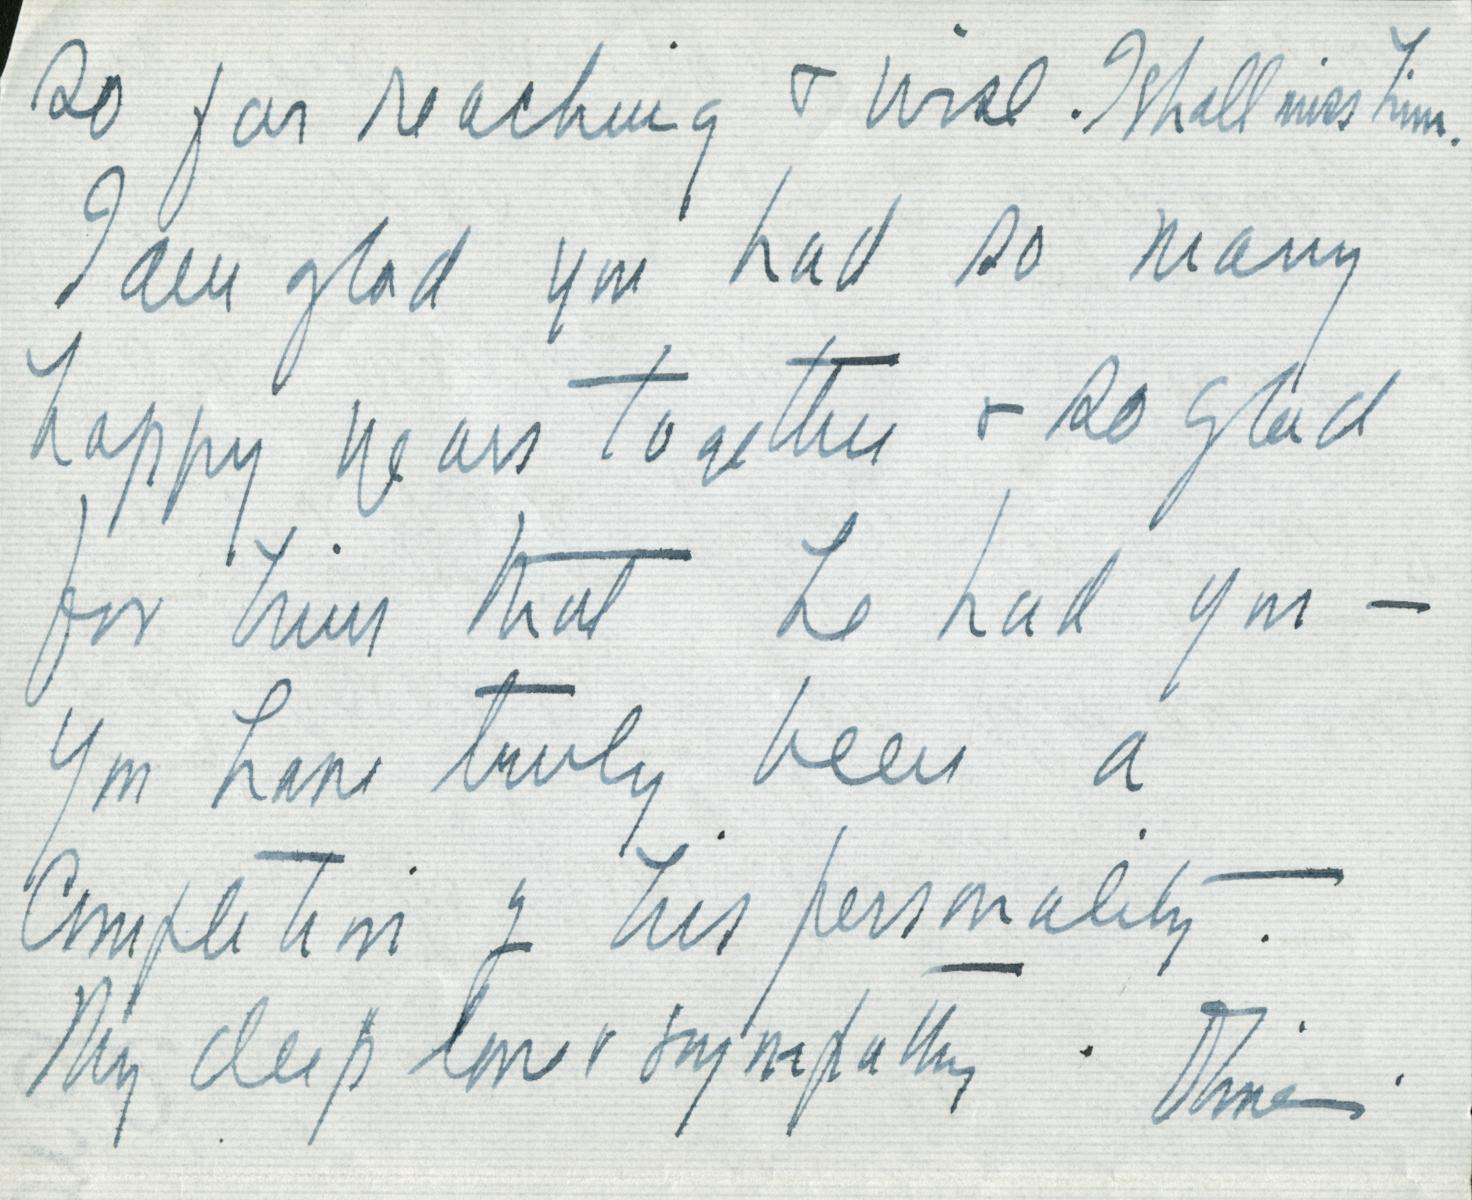 so far reaching & wise. I shall miss him.
I am glad you had so many
happy years together & so glad
for him that he had you —
you have truly been a
Completion of his personality.
My deep love & sympathy.